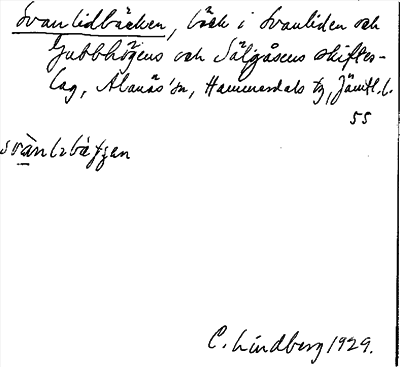 Svanlidbäcken, bäck i Svanliden och
Gubbhögens och Sälgåsens skiftes-
lag, Alanäs' sn, Hammerdals tg, Jämtl. l.
55
C. Lindberg 1929.